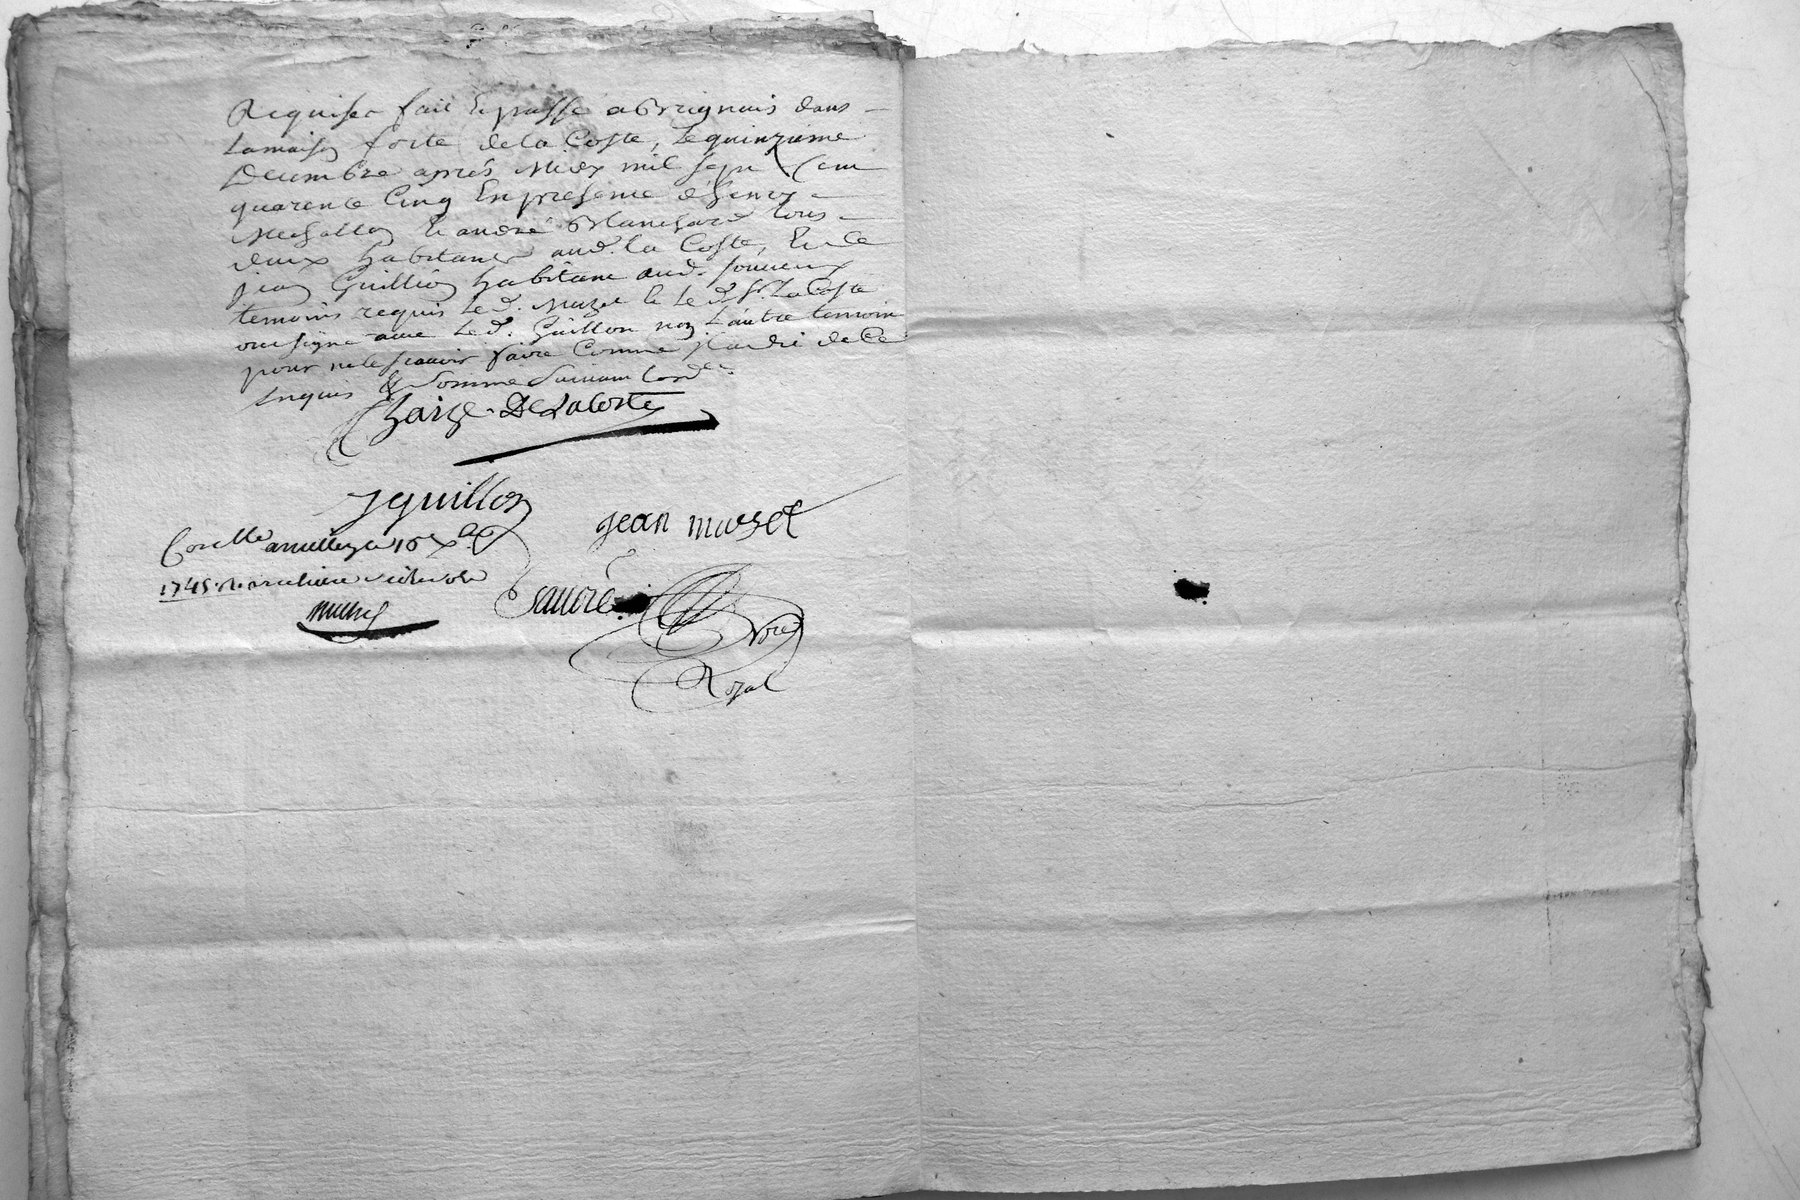 Requises fait Et passé a Brignais dans
La maison forte de la Coste, Le quinzieme
Decembre aprés Midy mil sept Cent
quarente Cinq En presence de
Et andré Blanchard tous
deux habitans aud. la Coste, Et de
jean Guillion habitant aud.
temoins requis Le d. Muzet & Le d. Sr. La Coste
ont signé avec Le d. Guillon non L'autre temoin
pour ne le scavoir faire Comme Il a dit de Ce
Enquis & Sommé Suivant Lord.ce
Chaize De Lacoste
J guillon
jean muzet
Con.llé a le 16e xbre
1745. R.
Sauvré
Nore
Royal